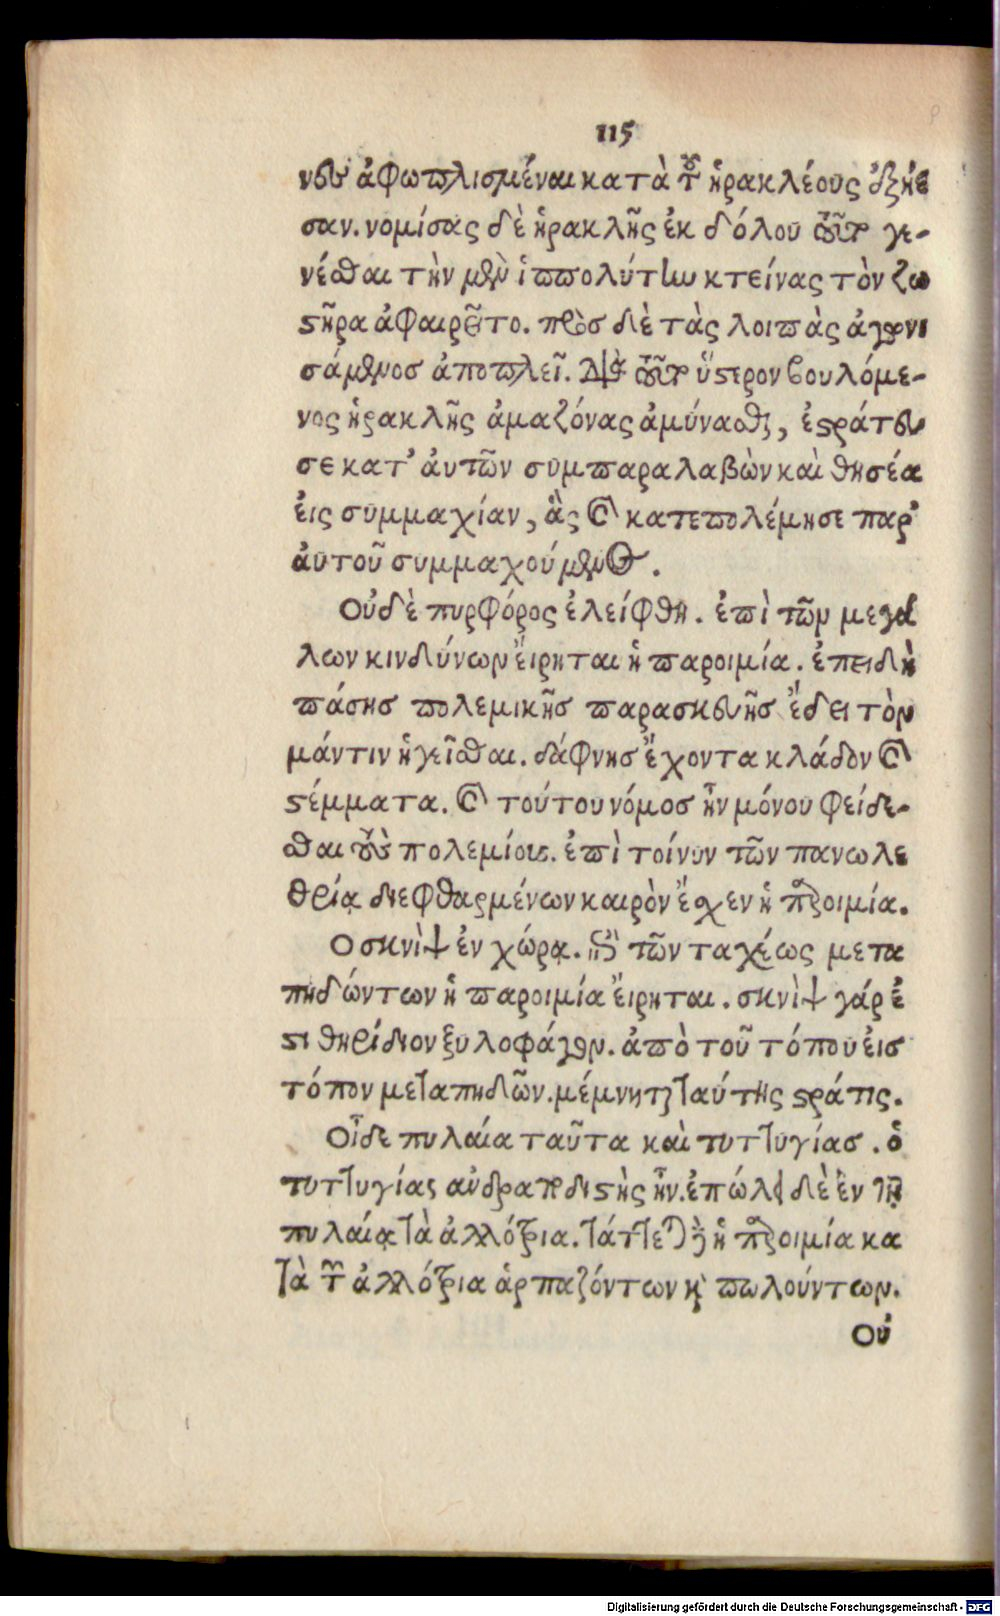 115
νευ ἀφωπλισμέναι κατὰ τοῦ ἡρακλέους ἐξήε
σαν. νομίσας δὲ ἡρακλῆς ἐκ δόλου τοῦτο γε-
νέσθαι τὴν μὲν ἱππολύτην κτείνας τὸν ζω
στῆρα ἀφαιρεῖτο. πρὸσ δὲ τὰς λοιπὰς ἀγωνι
σάμενοσ ἀποπλεῖ. μετὰ τοῦτο ὕστερον βουλόμε-
νος ἡρακλῆς ἀμαζόνας ἀμύνασθαι, ἐστράτευ
σε κατ' ἀυτῶν συμπαραλαβὼν καὶ θησέα
ἐις συμμαχίαν, ἃς καὶ κατεπολέμησε παρ'
ἀυτοῦ συμμαχούμενος.
Οὐδὲ πυρφόρος ἐλείφθη. ἐπὶ τῶν μεγά
λων κινδύνων ἔιρηται ἡ παροιμία. ἐπειδὴ
πάσησ πολεμικῆσ παρασκευῆσ ἔδει τὸν
μάντιν ἡγεῖσθαι. δάφνησ ἔχοντα κλάδον καὶ
στέμματα. καὶ τούτου νόμοσ ἦν μόνου φείδε-
σθαι τοὺς πολεμίους. ἐπὶ τοίνυν τῶν πανωλε
θρίᾳ διεφθαρμένων καιρὸν ἔχεν ἡ παροιμία.
Ο σκνὶψ ἐν χώρᾳ. ἐπὶ τῶν ταχέως μετα
πηδώντων ἡ παροιμία ἔιρηται. σκνὶψ γάρ ἐ
στι θηρίδιον ξυλοφάγον. ἀπὸ τοῦ τόπου ἐισ
τόπον μεταπηδῶν. μέμνηται ταύτης στράτις.
Οἷδε πυλαία ταῦτα καὶ τυττυγίασ. ὁ
τυττυγίας ἀνδραποδιστὴς ἦν. ἐπώλει δὲ ἐν τῇ
πυλαίᾳ τὰ ἀλλότρια. τάττεται οὖν ἡ παροιμία κα
τὰ τῶν ἀλλότρια ἁρπαζόντων καὶ πωλούντων.
Οὐ
Digitalisierung gefördert durch die Deutsche Forschungsgemeinschaft - DFG